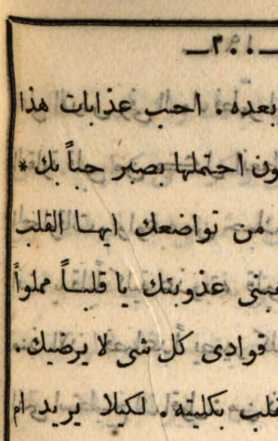 ـ٢٠١ـ
بعده . احب عذابات هذا
ون احتملها بصبر حباً بك *
من تواضعك ايها القلب
عذوبتك يا قلباً مملواً
فوادى كل شى لا يرضيك .
بكليته . لكيلا يريد ام